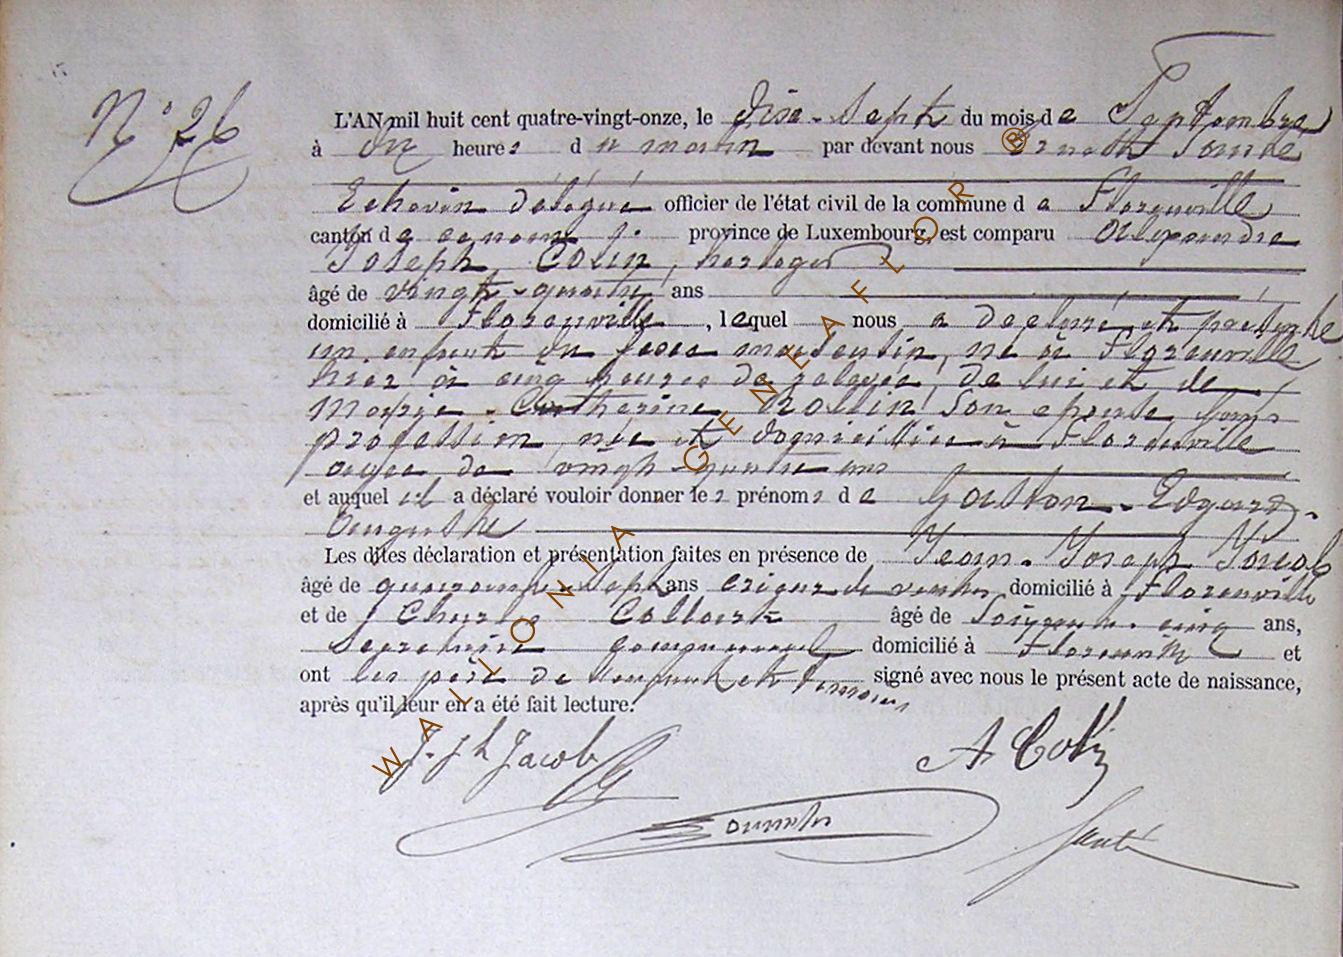 N° 26
L'AN mil huit cent quatre-vingt-onze, le dix-sept du mois de Septembre
à dix heures du matin par devant nous
Echevin délégué officier de l'état civil de la commune de Florenville
canton de province de Luxembourg, est comparu Alexandre
Joseph Colin, horloger
âgé de vingt-quatre ans
domicilié à Florenville, lequel nous a déclaré et présenté
un enfant du sexe masculin, né à Florenville
hier à cinq heures de relevée, de lui et de
Marie-Catherine Rollin son épouse sans
profession née et domiciliée à Florenville
agée de vingt-quatre ans
et auquel il a déclaré vouloir donner les prénoms de Gaston-Edgard-
Auguste
Les dites déclaration et présentation faites en présence de Jean-Joseph Jacob
âgé de quarante-sept ans crieur de ventes domicilié à Florenville
et de Charles âgé de soixante-cinq ans,
Secrétaire communal domicilié à Florenville et
ont les père de l'enfant et témoins signé avec nous le présent acte de naissance,
après qu'il leur en a été fait lecture.
J-Jh Jacob
A Colin
WALLONIA GENEAFLOR ®